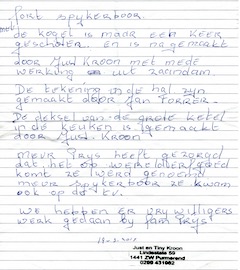 fort spykerboor.
de kogel is maar een KEER
geschoten. en is nagemaakt
door Just Kroon met mede
werking uit zaandam.
De tekening in de hal zyn
gemaakt door Jan PORRER.
De deksel van de grote ketel
in de keuken is gemaakt
door Just. Kroon
Meur Prys heeft gezorgd
dat. het op wereldergoed
komt ze werd genoemd
meur spykerboor ze kwam
ook op de tv.
We hebben er vrywilligers
werk gedaan by fort Prys
Just en Tiny Kroon
Lindestate 59
1441 ZW Purmerend
0299 431962